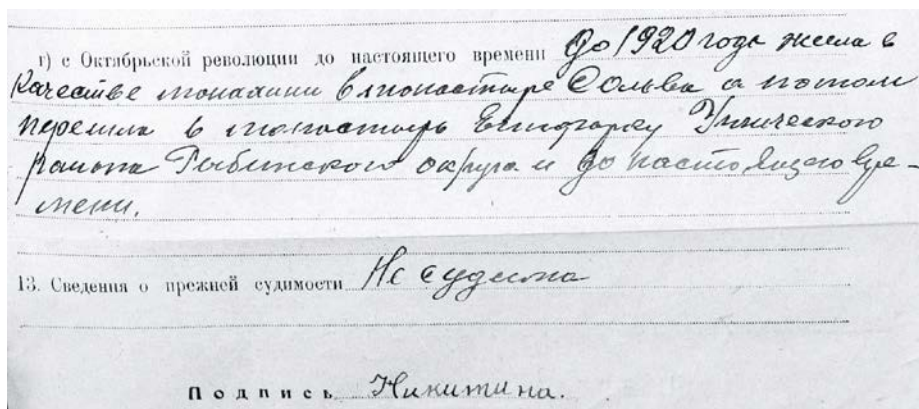 г) с Октябрьской революции до настоящего времени До 1920 года жила в
качестве монахини в монастыре Сольба а потом
перешла в монастырь Угличского
района Рыбинского округа и до настоящего вре-
мени.
13. Сведения о прежней судимости Не судима
Подпись Никитина.